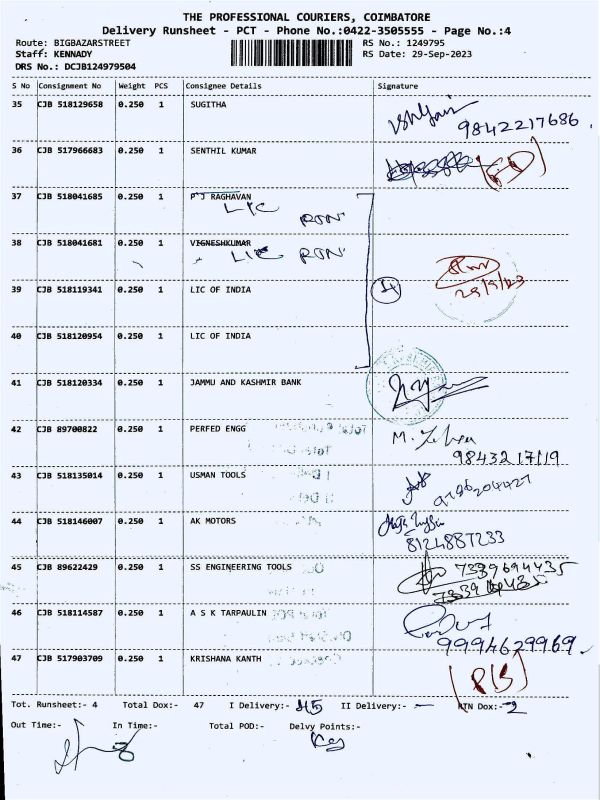 THE PROFESSIONAL COURIERS, COIMBATORE
Delivery Runsheet - PCT - Phone No.:0422-3505555 - Page No.:4
Route: BIGBAZARSTREET RS No.: 1249795
Staff: KENNADY RS Date: 29-Sep-2023
DRS No.: DCJB124979504
S No Consignment No Weight PCS Consignee Details Signature
35 CJB 518129658 0.250 1 SUGITHA
9842217686
36 CJB 517966683 0.250 1 SENTHIL KUMAR
37 CJB 518041685 0.250 1 P J RAGHAVAN
LIC RTN
38 CJB 518041681 0.250 1 VIGNESHKUMAR
LIC RTN
39 CJB 518119341 0.250 1 LIC OF INDIA 4
29/9/23
40 CJB 518120954 0.250 1 LIC OF INDIA
41 CJB 518120334 0.250 1 JAMMU AND KASHMIR BANK
42 CJB 89700822 0.250 1 PERFED ENGG
9843217119
43 CJB 518135014 0.250 1 USMAN TOOLS
44 CJB 518146007 0.250 1 AK MOTORS
8124887233
45 CJB 89622429 0.250 1 SS ENGINEERING TOOLS 7339694435
46 CJB 518114587 0.250 1 A S K TARPAULIN
9994629969.
47 CJB 517903709 0.250 1 KRISHANA KANTH
Tot. Runsheet:- 4 Total Dox:- 47 I Delivery:- 45 II Delivery:- - RTN Dox:- 2
Out Time:- In Time:- Total POD:- Delvy Points:-